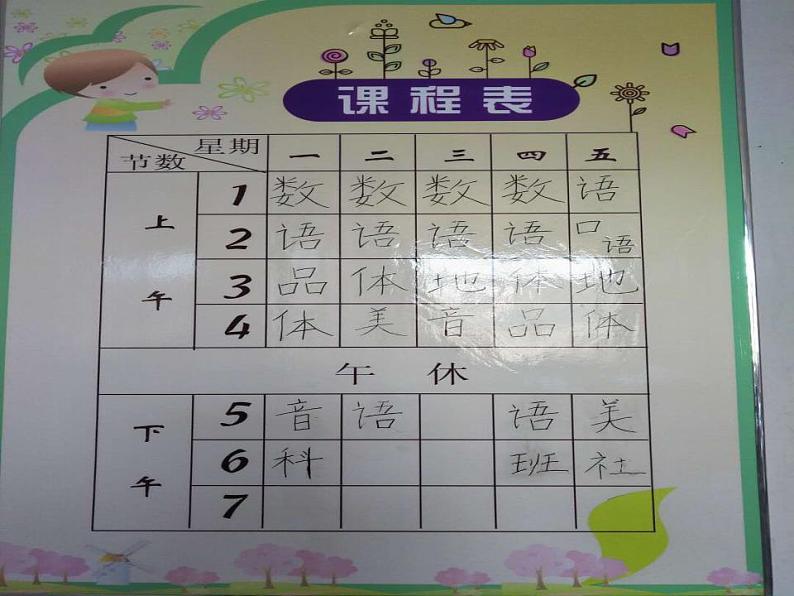 课程表
星期 一 二 三 四 五
节数
上午
1 数 数 数 数 语
2 语 语 语 语 口语
3 品 体 地 体 地
4 体 美 音 品 体
午休
下午
5 音 语 语 美
6 科 班 社
7